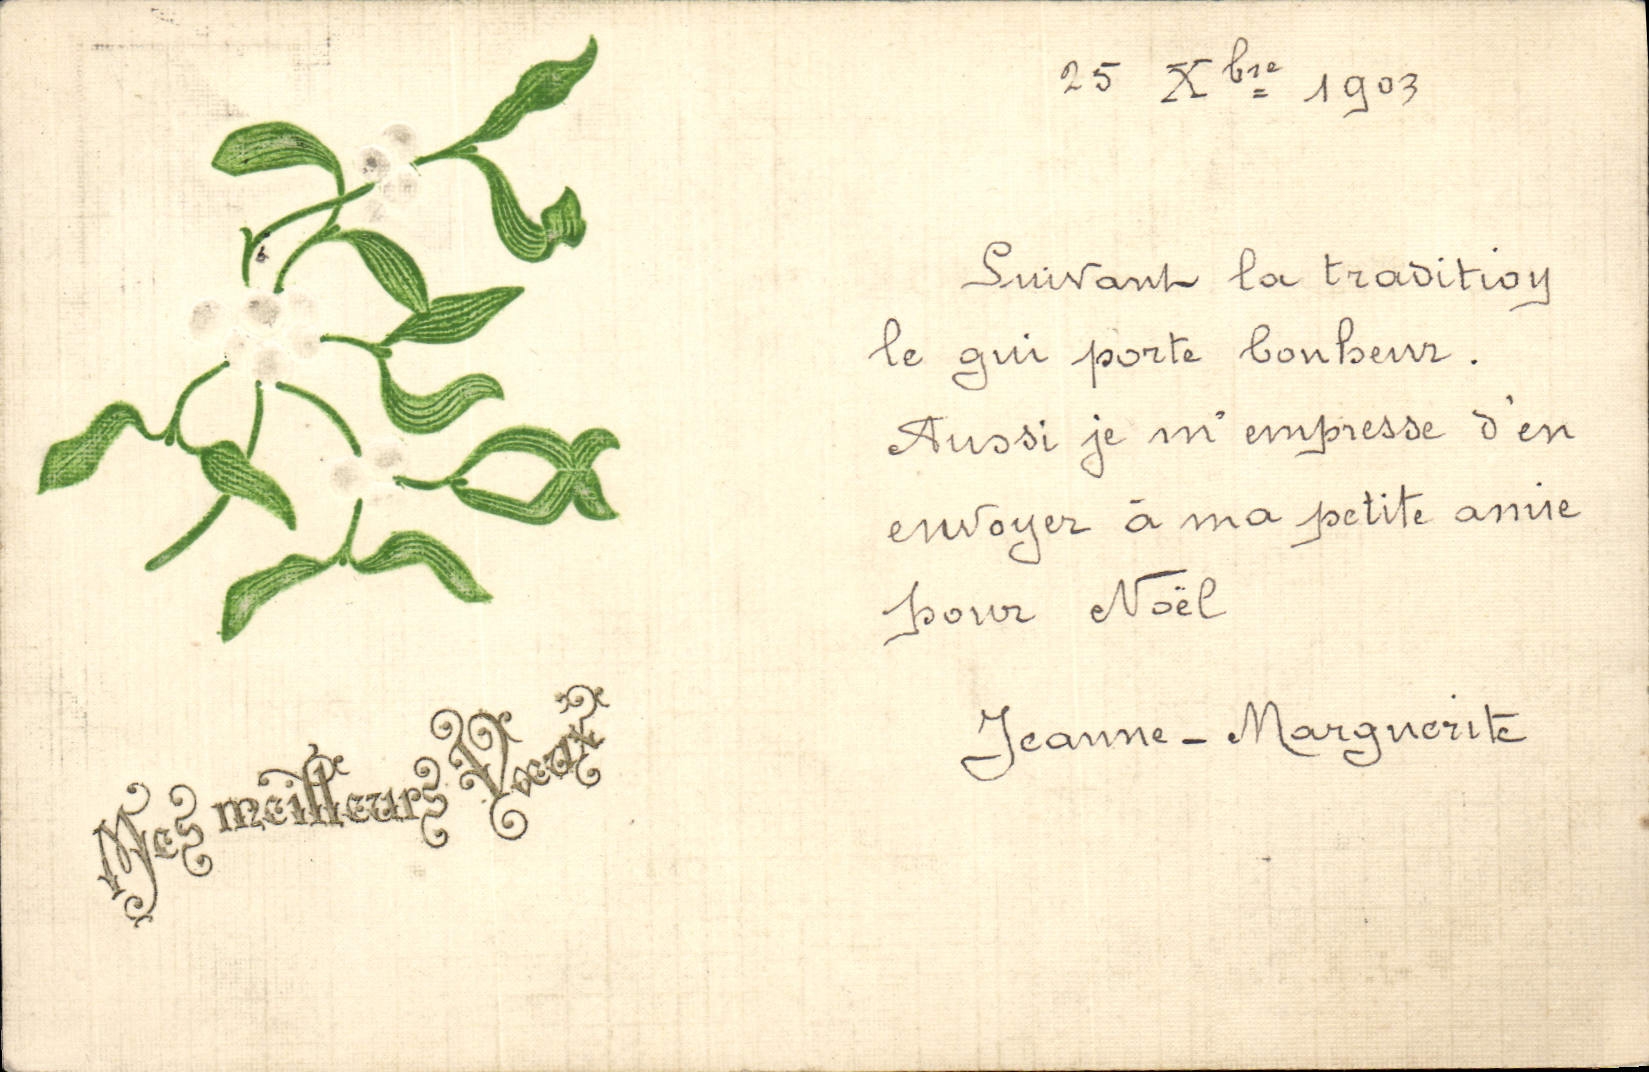 25 Xbre 1903
Suivant la tradition
le gui porte bonheur.
Aussi je m'empresse d'en
envoyer à ma petite amie
pour Noël
Jeanne-Marguerite
Mes meilleurs Vœux